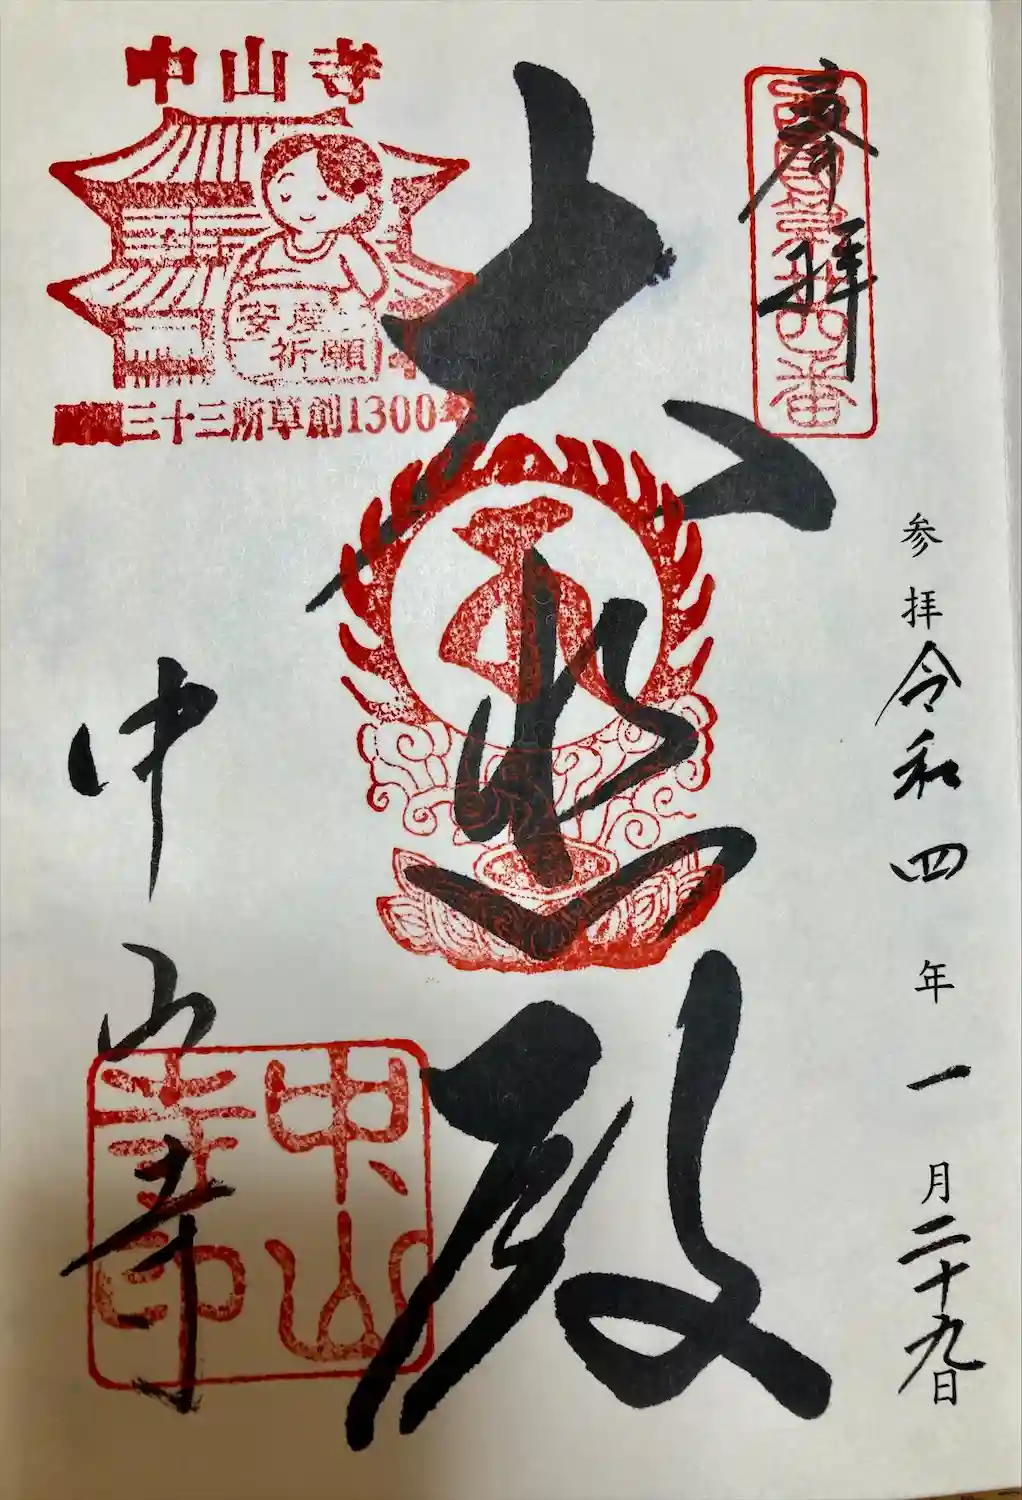 奉拝
西国第廿四番
参拝令和四年一月二十九日
大悲殿
中山寺
安産
祈願
三十三所草創1300年
中山寺
中山寺印